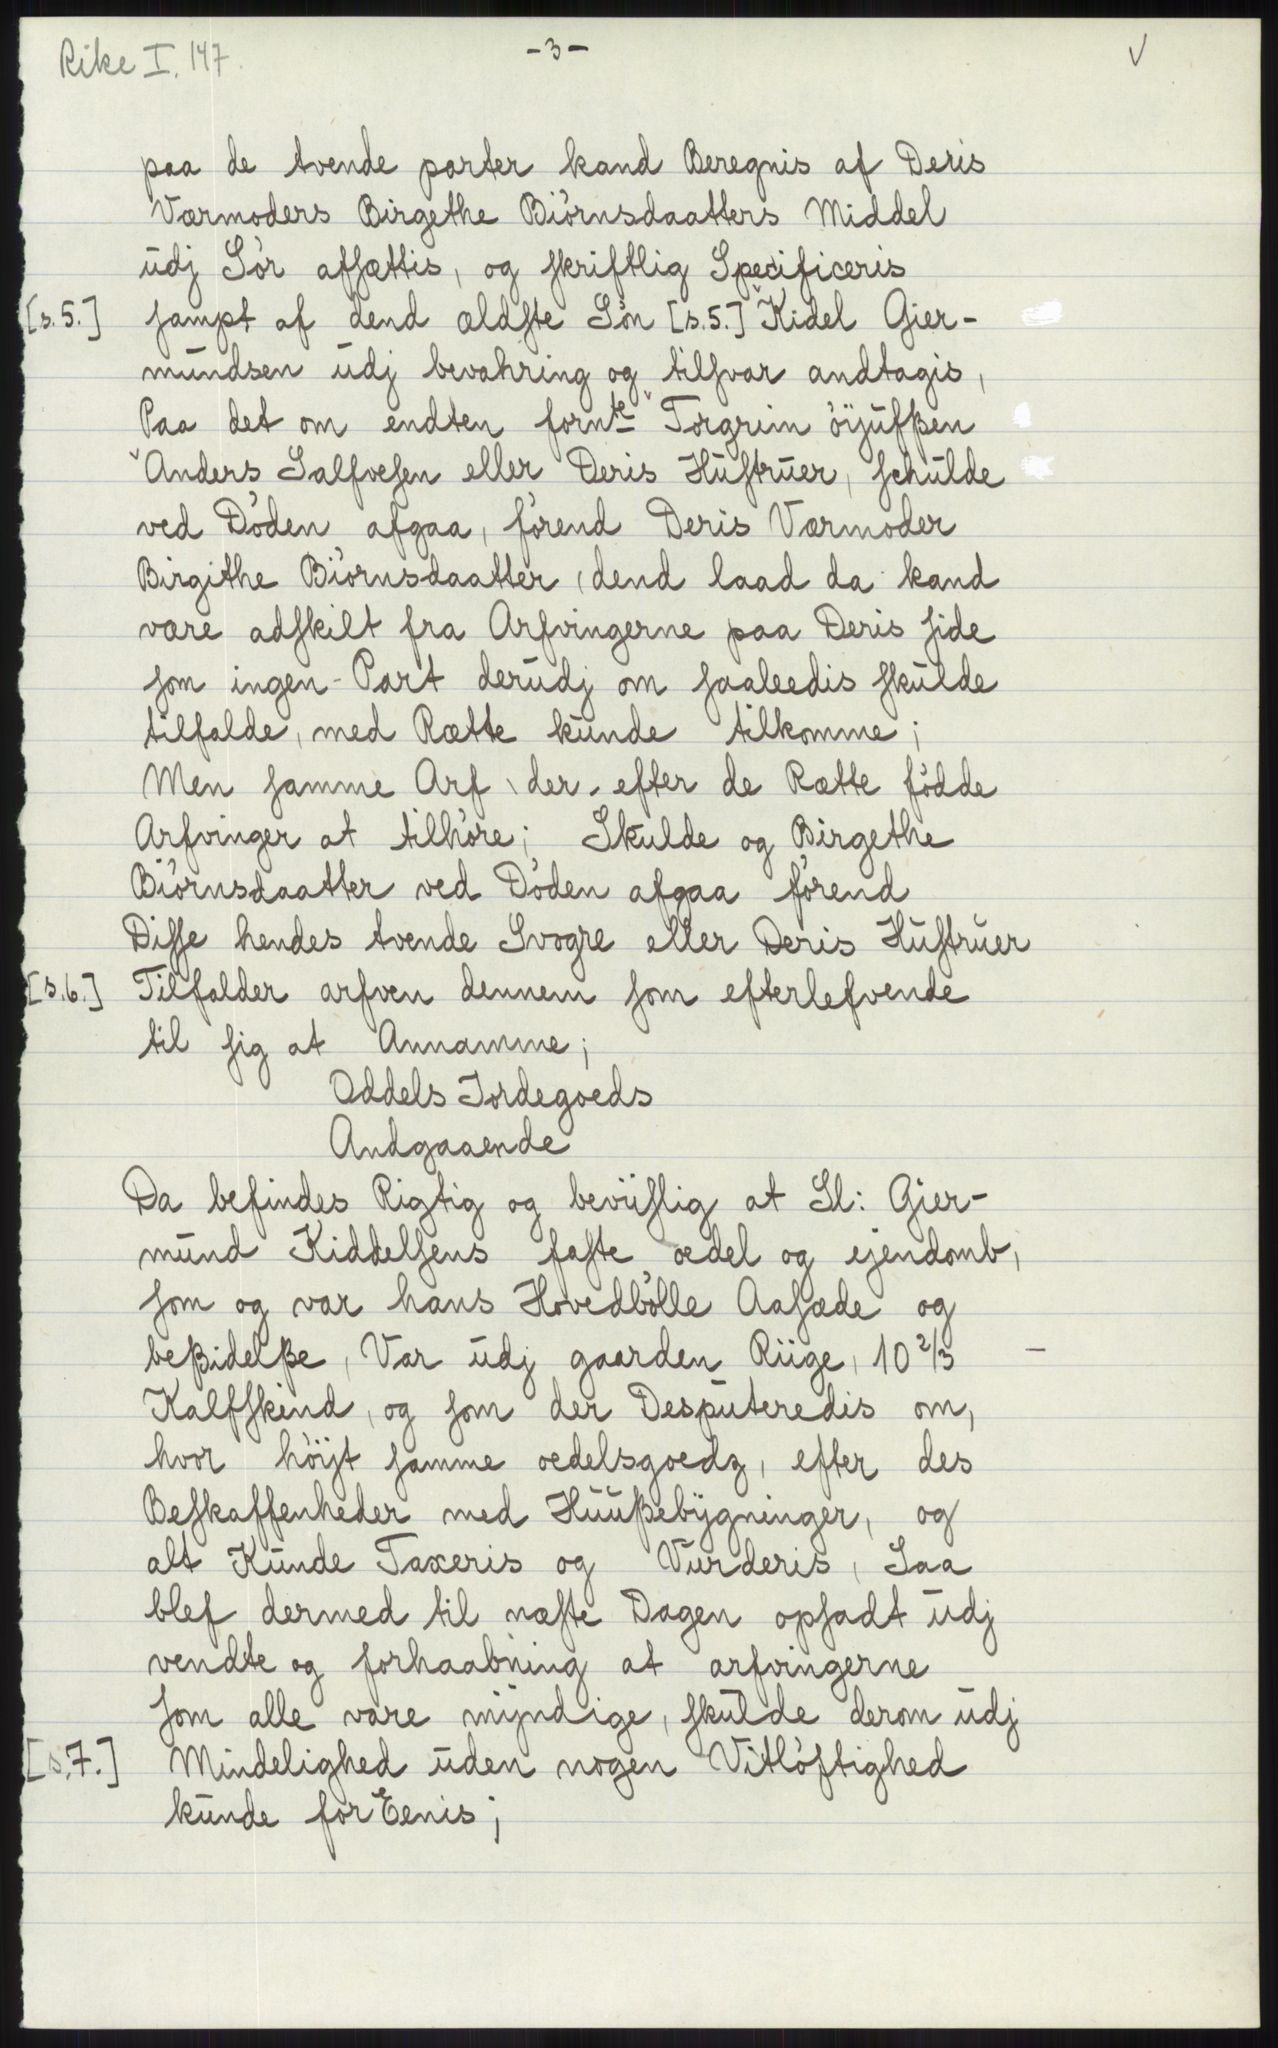 Rike I. 147.
- 3 -
paa de tvende parter kand Beregnis af Deris
Værmoders Birgethe Biörnsdaatters Middel
udj Sör afsættis, og skriftlig Specificeris
[s.5.] sampt af dend ældste Sön [s.5.] Kidel Gier-
mundsen udj bevahring og tilsvar andtagis,
Paa det om endten fornte Torgrim öÿufßen
Anders Salfvesen eller Deris Hustruer, schulde
ved Döden afgaa, förend Deris Værmoder
Birgithe Biörnsdaatter, dend laad da kand
være adskilt fra Arfvingerne paa Deris side
som ingen Part derudj om saaleedis skulde
tilfalde, med Rætte kunde tilkomme;
Men samme Arf der efter de Rætte födde
Arfvinger at tilhöre; Skulde og Birgethe
Biörnsdaatter ved Döden afgaa förend
Disse hendes tvende Svogre eller Deris Hustruer
[s.6.] Tilfalder arfven dennem som efterlefvende
til sig at Annamme;
Oddels Jordegoeds
Andgaaende
Da befindes Rigtig og beviislig at Sl: Gier-
mund Kiddelsens faste oedel og ejendomb,
som og var hans Hovedbölle Aasæde og
beßidelße, Var udj gaarden Riige, 10 2/3
Kalfskind, og som der Desputeredis om,
hvor höÿt samme oedelsgoedz, efter des
Beskaffenheder med Huußebÿgninger, og
alt Kunde Taxeris og Vurderis, Saa
blef dermed til næste Dagen opsadt udj
vendte og forhaabning at arfvingerne
som alle vare mÿndige, skulde derom udj
[s.7.] Mindelighed uden nogen Vitlöftighed
kunde forEenis;